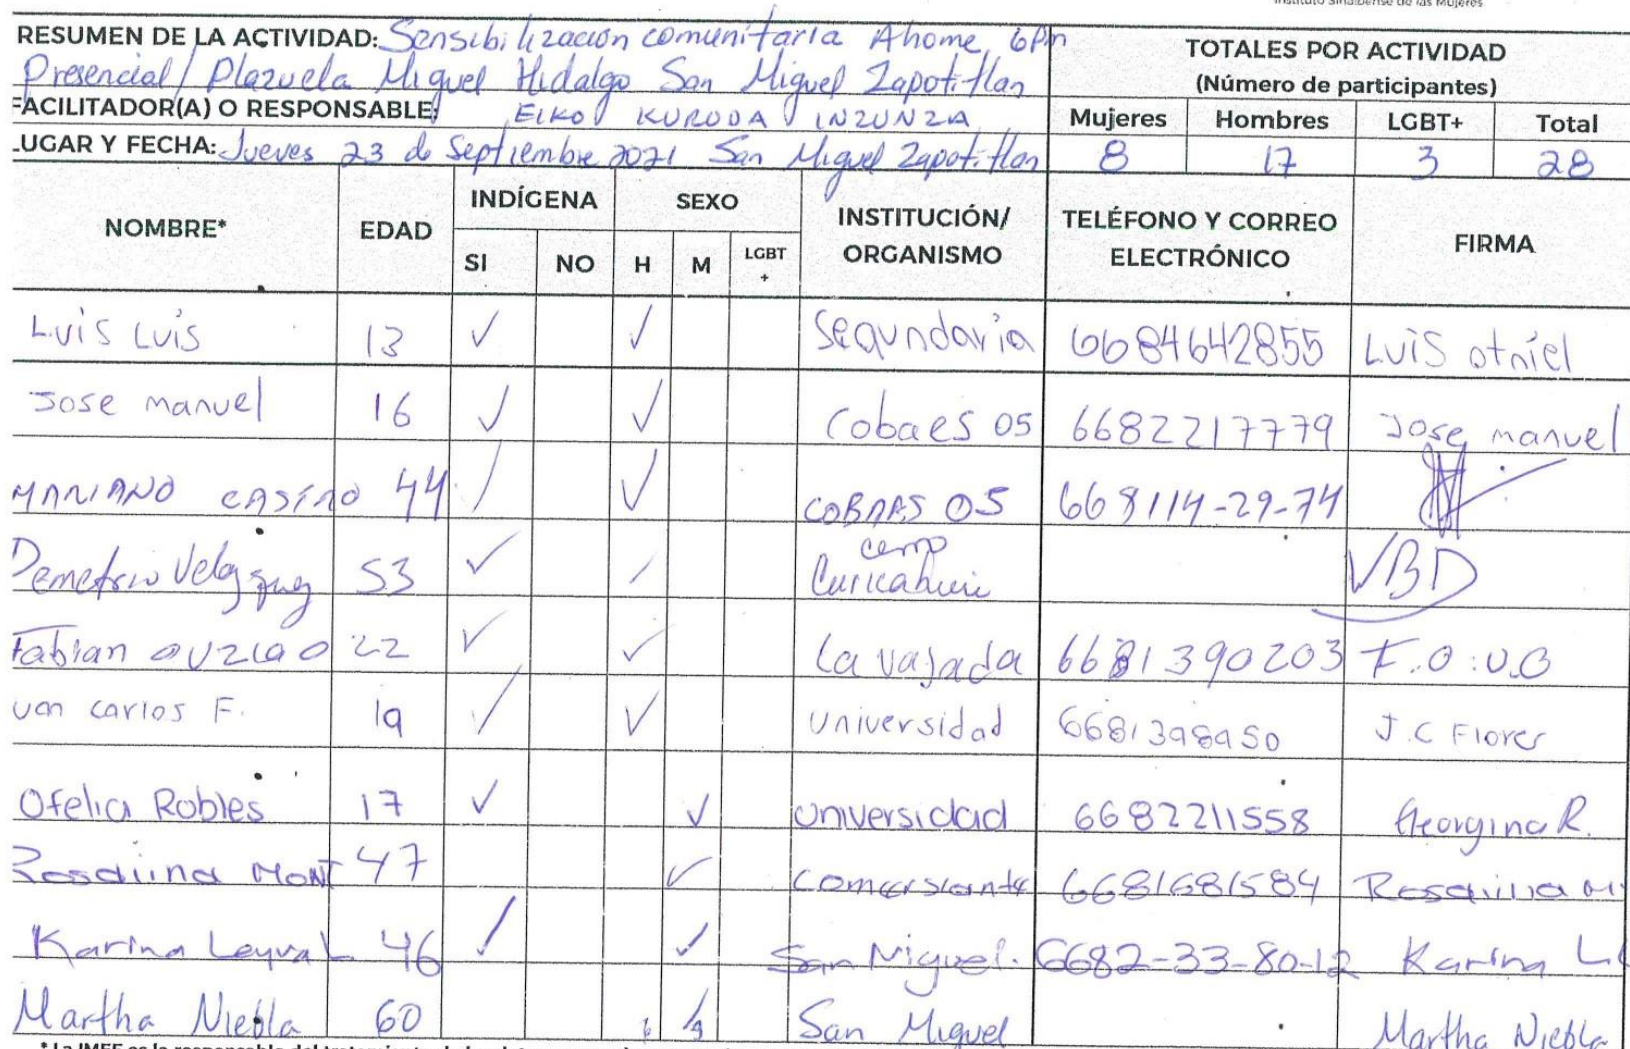 Instituto Sinaloense de las Mujeres
RESUMEN DE LA ACTIVIDAD: Sensibilización comunitaria Ahome 6pm
Presencial/ Plazuela Miguel Hidalgo San Miguel Zapotitlan
FACILITADOR(A) O RESPONSABLE: EIKO KURODA INZUNZA
LUGAR Y FECHA: Jueves 23 de Septiembre 2021 San Miguel Zapotitlan
TOTALES POR ACTIVIDAD
(Número de participantes)
Mujeres Hombres LGBT+ Total
8 17 3 28
NOMBRE* EDAD INDÍGENA SI NO SEXO H M LGBT+ INSTITUCIÓN/ ORGANISMO TELÉFONO Y CORREO ELECTRÓNICO FIRMA
Luis Luis 13 ✓ ✓ Segundaria 6684642855 Luis otniel
Jose manuel 16 ✓ ✓ Cobaes 05 6682217779 Jose manuel
MARIANO CASTRO 44 / ✓ COBAES 05 668114-29-74
Demetrio Velazquez 53 ✓ / Curicahui VBD
Fabian 22 ✓ ✓ La vajada 6681390203 F.O.V.O
uan carlos F. 19 / ✓ Universidad 6681398950 J.C Flores
Ofelia Robles 17 ✓ ✓ Universidad 6682211558 Georgina R.
MONT 47 ✓ Comersiante 6681681584
Karina Leyva L 46 / ✓ San Miguel. 6682-33-80-12 Karina
Martha Niebla 60 San Miguel Martha Niebla